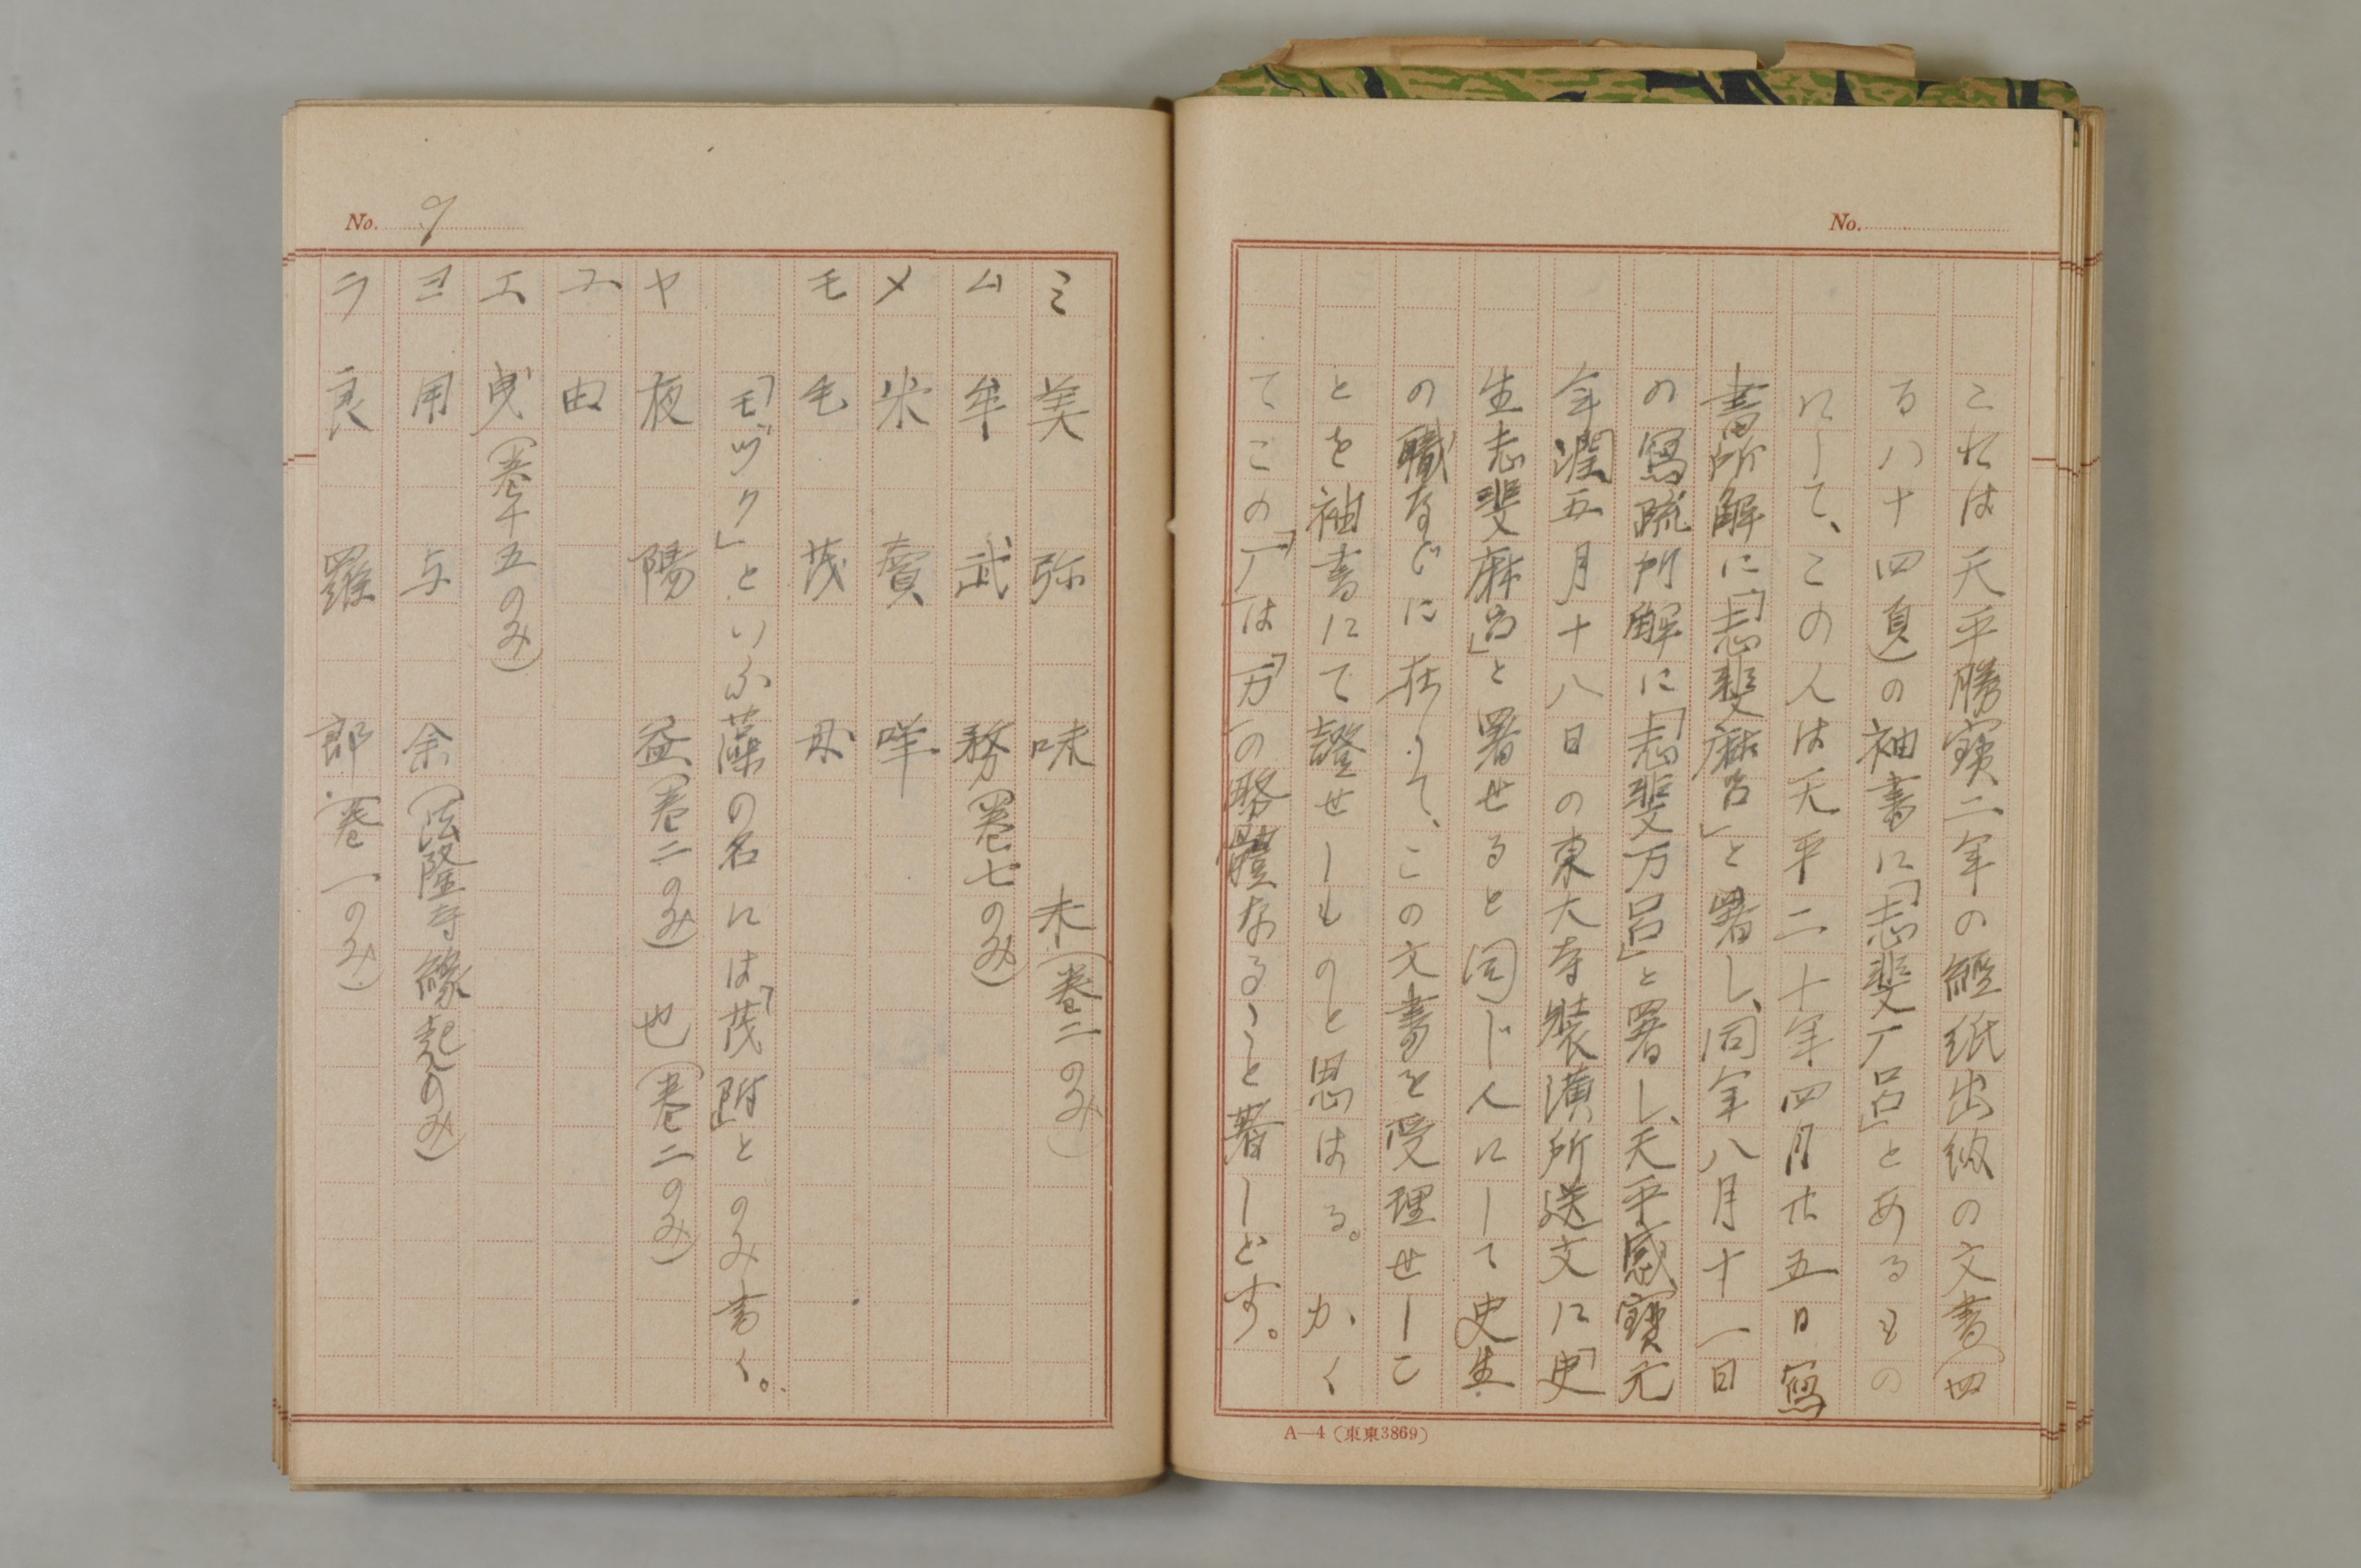 No.
これは天平勝寳二年の經紙出納の文書(四
る八十四頁)の袖書に「志斐𠂆呂」とあるもの
にして、この人は天平二十年四月廿五日寫
書所解に「志斐麻呂」と署し、同年八月十一日
の寫疏所解に「志斐万呂」と署し、天平感寶元
年潤五月十八日の東大寺裝潢所送文に「史
生志斐麻呂」と署せると同じ人にして史生
の職などに在りて、この文書を受理せしこ
とを袖書にて證せしものと思はる。かく
てこの「𠂆」は「万」の略體なること著しとす。
A—4(東東3869)
No. 9
ミ 美 弥 味 未(卷二のみ)
ム 牟 武 務(卷七のみ)
メ 米 賣 咩
モ 毛 茂 母
「モヅク」といふ藻の名には「茂附」とのみ書く。
ヤ 夜 陽 益(卷二のみ) 也(卷二のみ)
ユ 由
エ 曳(卷十五のみ)
ヨ 用 与 余(法隆寺縁起のみ)
ラ 良 羅 郎(卷一のみ)